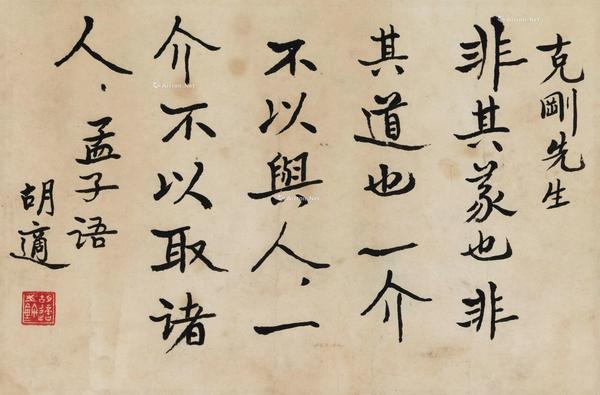 克剛先生
非其義也非
其道也一介
不以與人，一
介不以取諸
人，孟子語
胡適
Artron.Net